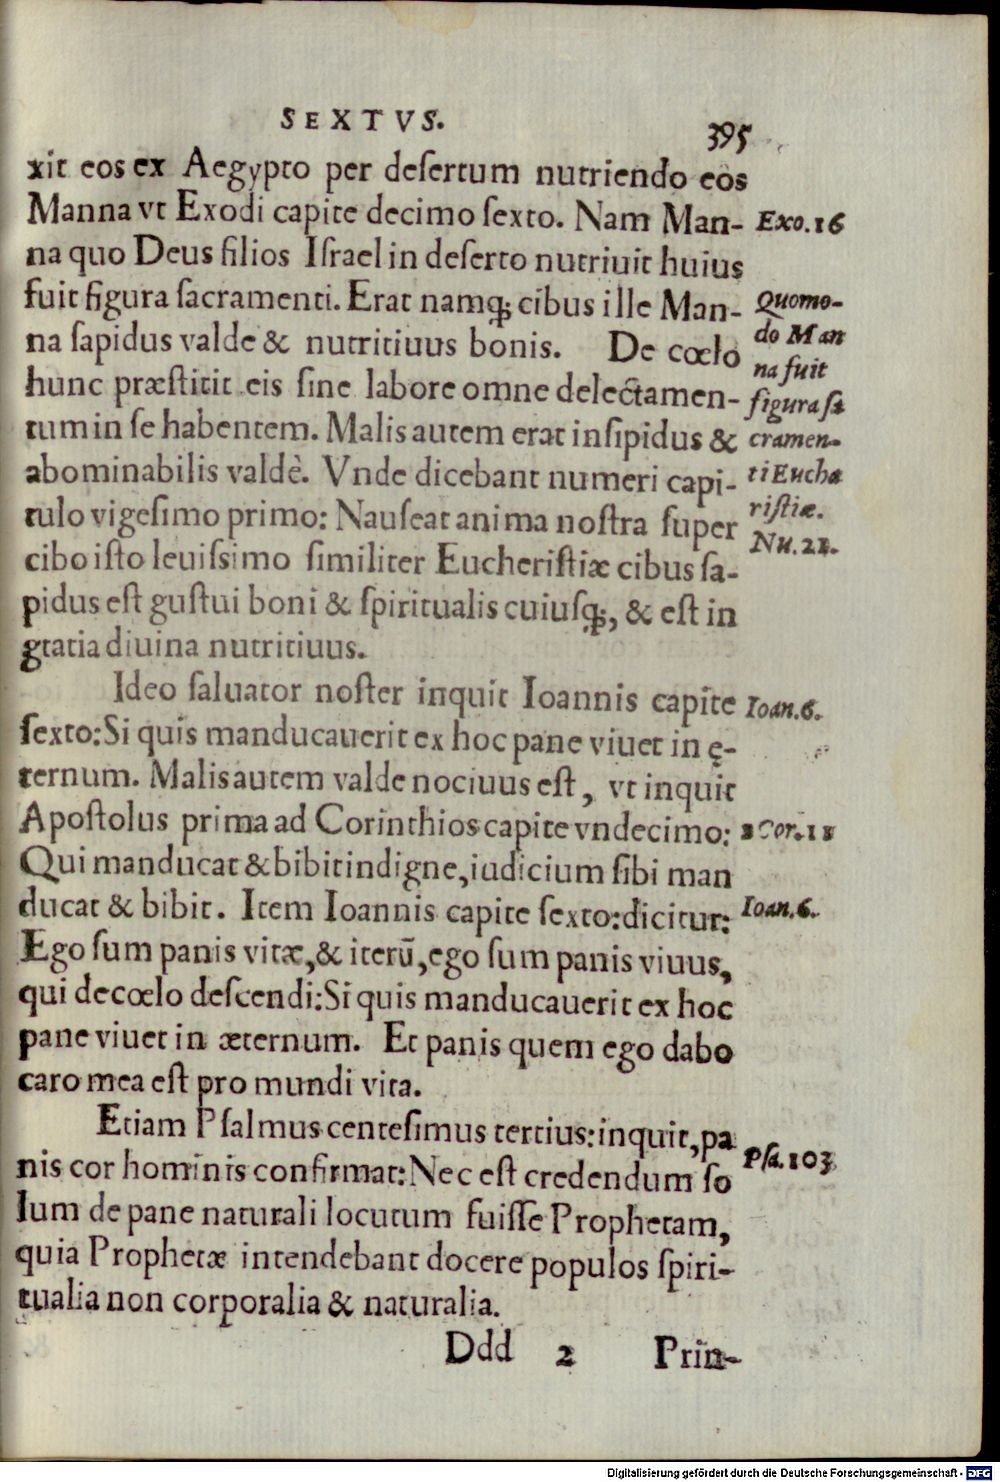 SEXTVS.
395
xit eos ex Aegypto per deſertum nutriendo eos
Manna vt Exodi capite decimo ſexto. Nam Man-
Exo.16
na quo Deus filios Iſrael in deſerto nutriuit huius
fuit figura ſacramenti. Erat namq; cibus ille Man-
na ſapidus valde & nutritiuus bonis. De cœlo
hunc præſtitit eis ſine labore omne delectamen-
tum in ſe habentem. Malis autem erat inſipidus &
abominabilis valdè. Vnde dicebant numeri capi-
tulo vigeſimo primo: Nauſeat anima noſtra ſuper
cibo iſto leuiſsimo ſimiliter Eucheriſtiæ cibus ſa-
pidus eſt guſtui boni & ſpiritualis cuiuſq;, & eſt in
gratia diuina nutritiuus.
Quomo-
do Man
na fuit
figura ſa
cramen-
ti Eucha
riſtiæ.
Nu.21.
Ideo ſaluator noſter inquit Ioannis capite
Ioan.6.
ſexto: Si quis manducauerit ex hoc pane viuet in ę-
ternum. Malis autem valde nociuus eſt, vt inquit
Apoſtolus prima ad Corinthios capite vndecimo:
1 Cor.11
Qui manducat & bibit indigne, iudicium ſibi man
ducat & bibit. Item Ioannis capite ſexto: dicitur:
Ioan.6.
Ego ſum panis vitæ, & iterū, ego ſum panis viuus,
qui de cœlo deſcendi: Si quis manducauerit ex hoc
pane viuet in æternum. Et panis quem ego dabo
caro mea eſt pro mundi vita.
Etiam Pſalmus centeſimus tertius: inquit, pa
Pſa.103
nis cor hominis confirmat: Nec eſt credendum ſo
lum de pane naturali locutum fuiſſe Prophetam,
quia Prophetæ intendebant docere populos ſpiri-
tualia non corporalia & naturalia.
Ddd 2 Prin-
Digitalisierung gefördert durch die Deutsche Forschungsgemeinschaft - DFG